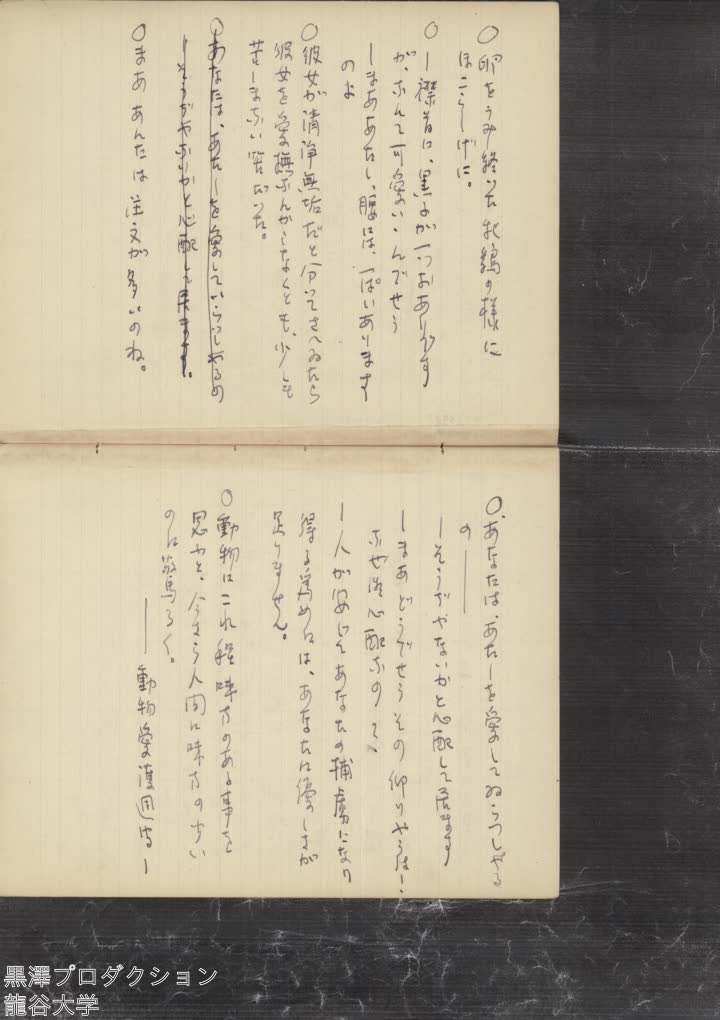 〇卵をうみ終った牝鶏の様に
ほこらしげに。
〇―襟首に、黒子が一つおありです
が、あんて可愛いんでせう
―まああたし、腰には、一ぱいあります
のよ
〇彼女が清浄無垢だと分ってさへゐたら
彼女を愛撫なんかしなくとも、少しも
苦しまない筈だった。
〇あなたは、あたしを愛していらっしやるの
―そうぢやないかと心配して居ます。
〇まああんたは注文が多いのね。
〇、あなたは、あたしを愛してゐらつしやる
の――
―そうぢやないかと心配して居ます
―まあどうでせうその仰りやうは!
なぜ御心配なの?
―人が安じてあなたの捕虜になり
得る為めには、あなたは優しさが
足りません。
〇動物にこれ程味方のある事を
思ふと、今さら人間に味方の少い
のに驚ろく。
――動物愛護週間―
黒澤プロダクション
龍谷大学